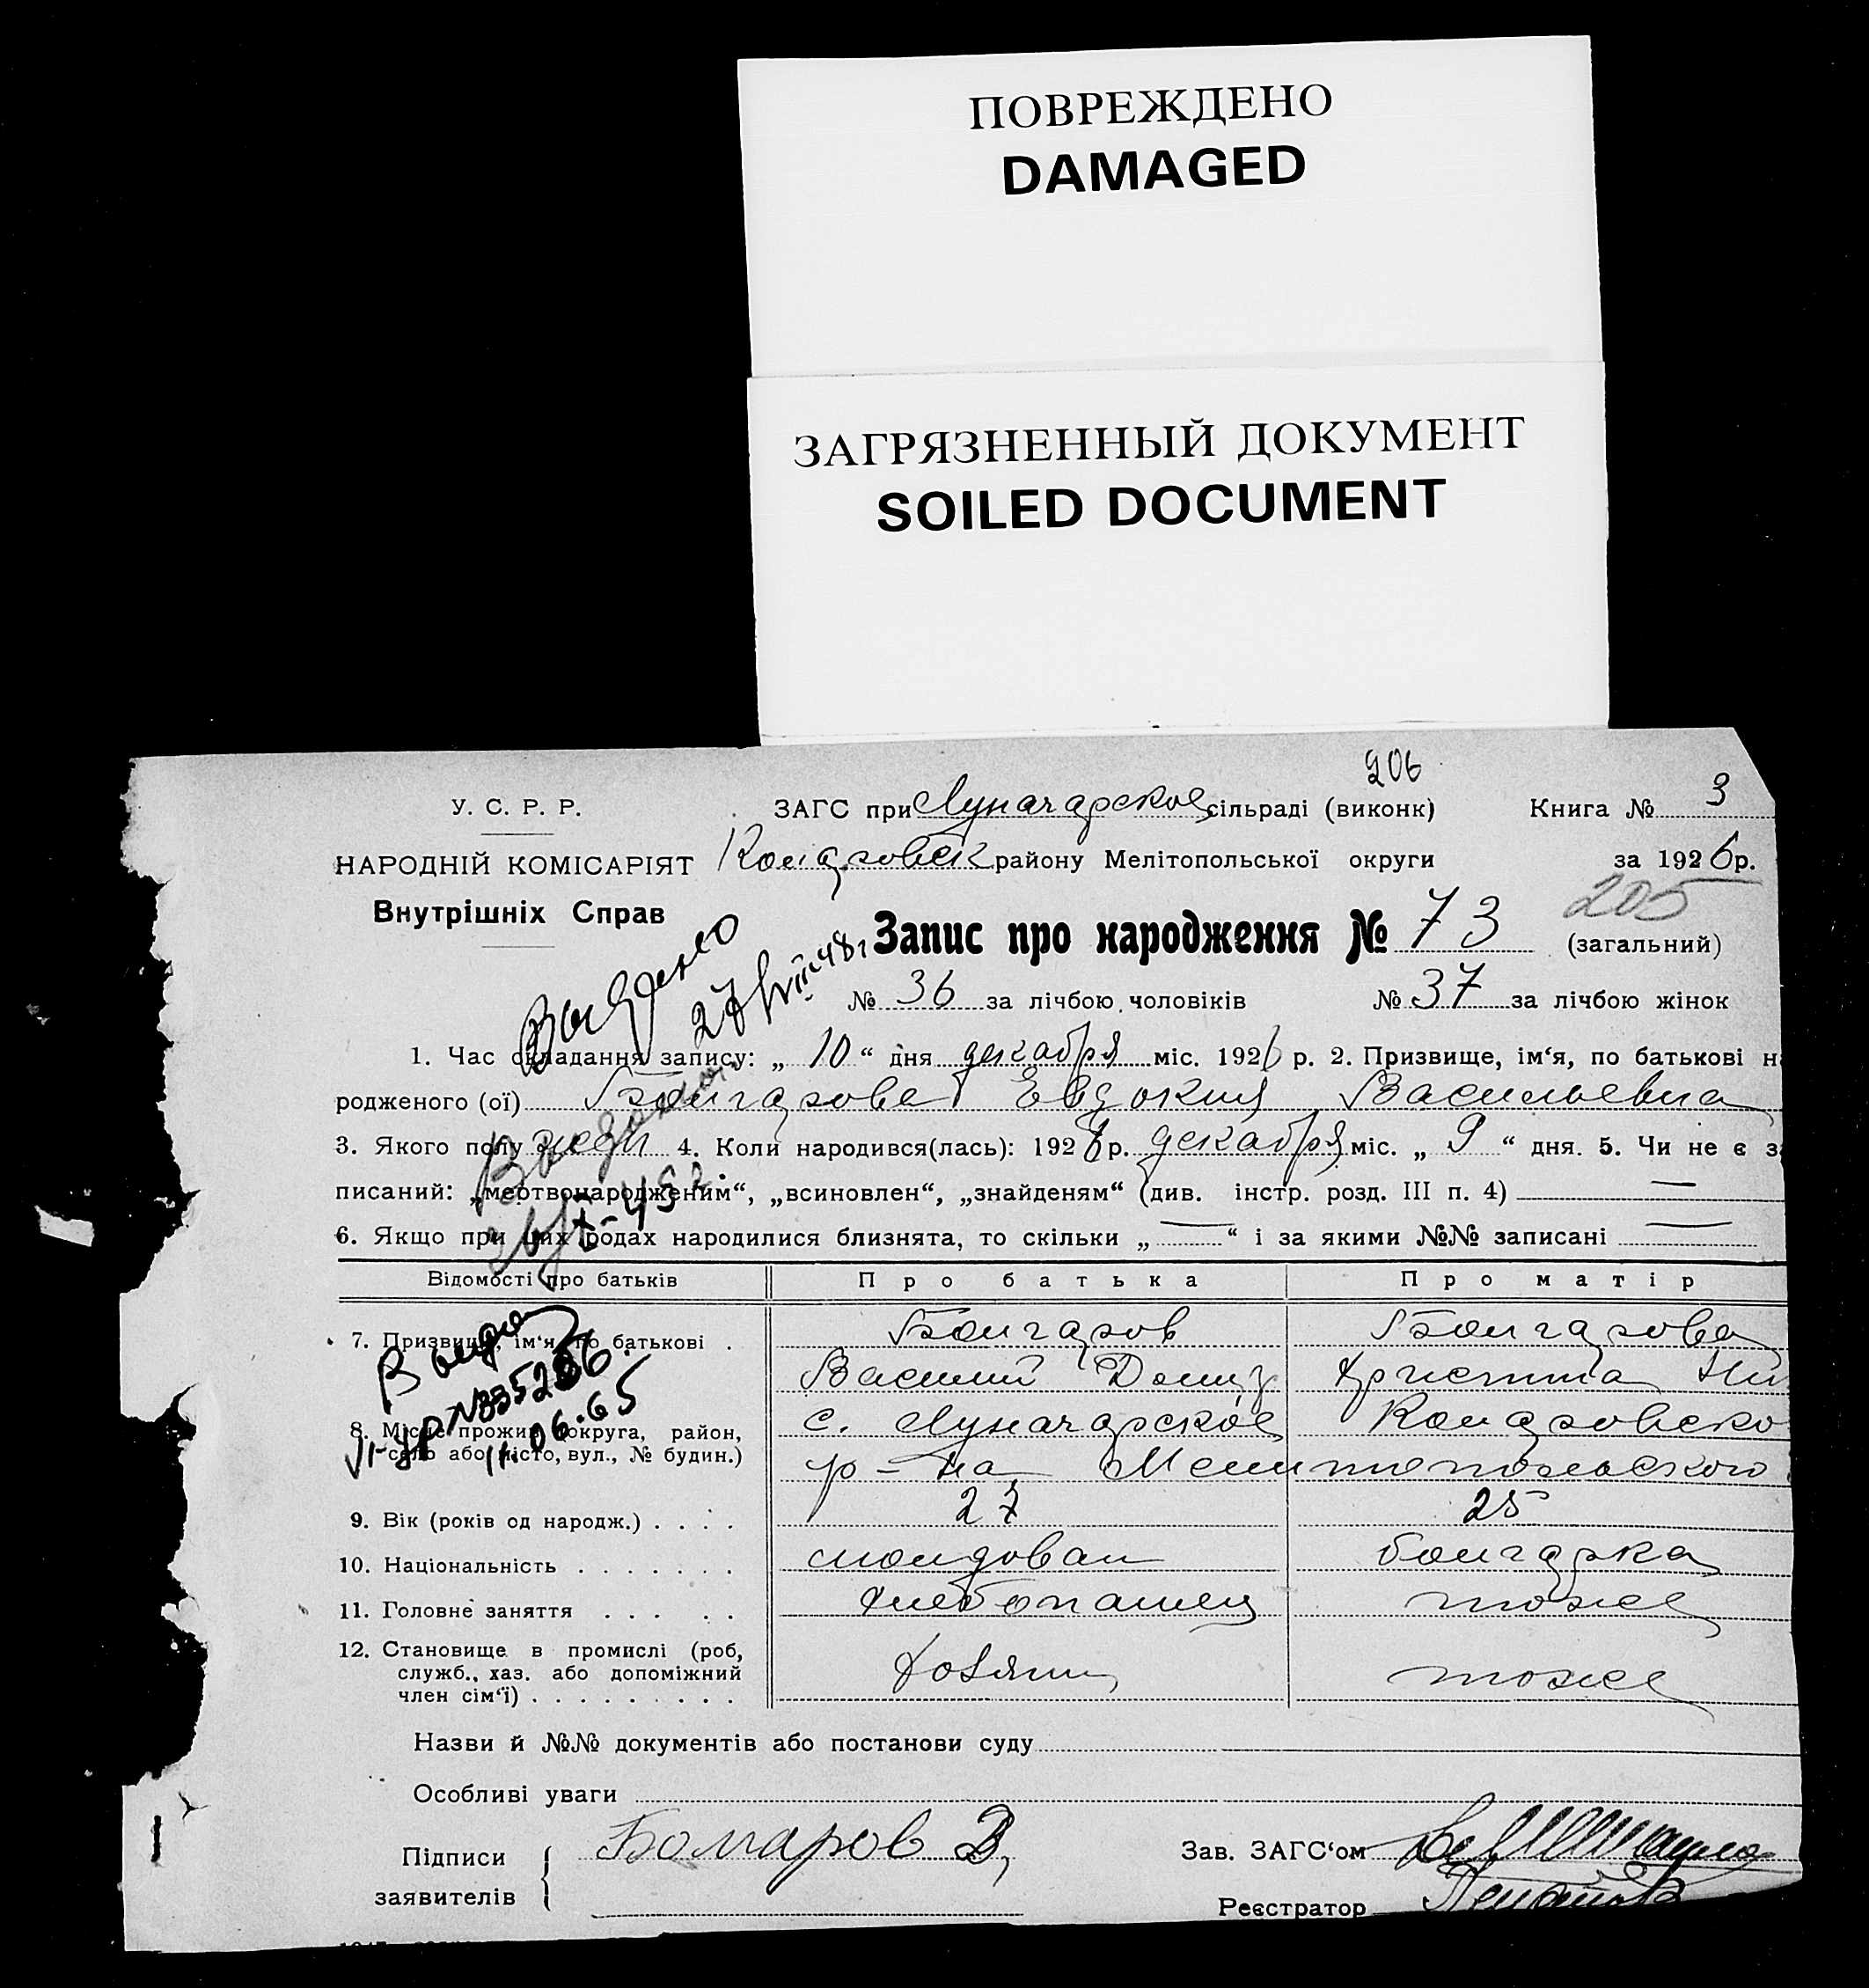 ПОВРЕЖДЕНО
DAMAGED
ЗАГРЯЗНЕННЫЙ ДОКУМЕНТ
SOILED DOCUMENT
206
У. С. Р. Р. ЗАГС при Луначарское сільраді (виконк) Книга № 3
НАРОДНІЙ КОМІСАРІЯТ району Мелітопольської округи за 1926 р.
Внутрішніх Справ
205
Запис про народження № 73 (загальний)
№ 36 за лічбою чоловіків № 37 за лічбою жінок
Выдано
27/VIII-48 г
1. Час складання запису: „ 10 “ дня декабря міс. 1926 р. 2. Призвище, ім‘я, по батькові н
родженого (ої) Болгарова Евдокия Васильевна
3. Якого полу 4. Коли народився(лась): 1926 р. декабря міс. „ 9 “ дня. 5. Чи не є з
писаний: „мертвонародженим“, „всиновлен“, „знайденям“ (див. інстр. розд. III п. 4) —
6. Якщо при цих родах народилися близнята, то скільки „ — “ і за якими №№ записані —
Відомості про батьків Про батька Про матір
7. Призвище, ім‘я, по батькові . Болгаров Болгарова
Василий Христина
8. Місце прожив. (округа, район, с. Луначарское
село або місто, вул., № будин.) р-на Мелитопольского
06.65
9. Вік (років од народж.) . . . . 27 25
10. Національність . . . . . . . молдован болгарка
11. Головне заняття . . . . . хлебопашец тоже
12. Становище в промислі (роб,
служб., хаз. або допоміжний
член сім‘ї) . . . . . . . . . хозяин тоже
Назви й №№ документів або постанови суду
Особливі уваги
Підписи
заявителів
Зав. ЗАГС‘ом
Реєстратор